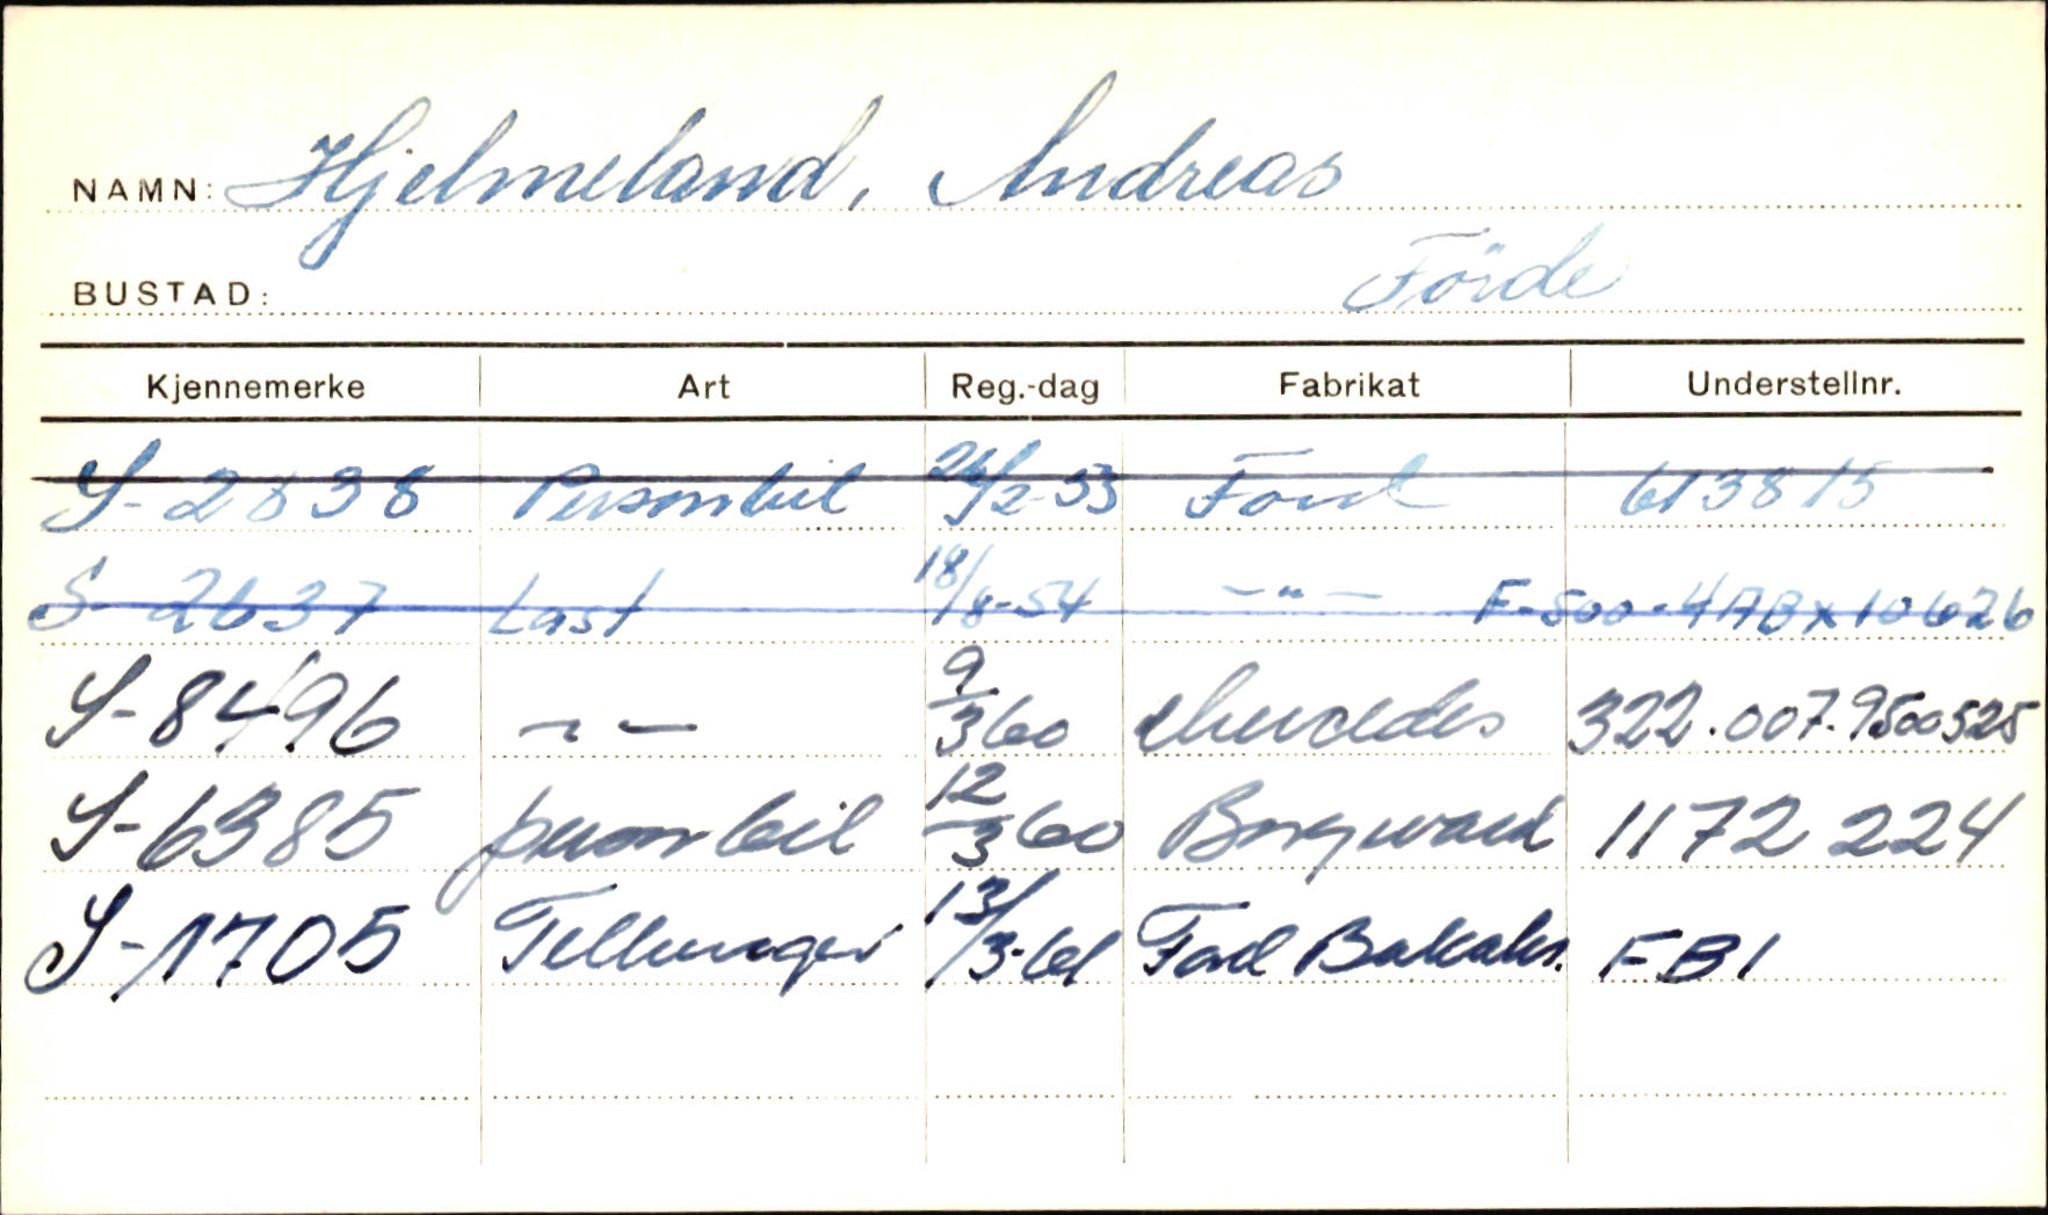 NAMN: Hjelmeland, Andreas
BUSTAD: Förde
Kjennemerke Art Reg.-dag Fabrikat Understellnr.
S-2838 Personbil 26/2-53 Ford 613815
S-2637 Last 18/8-54 -"- F-500-4ABX10626
S-8496 -"- 9/3 60 Mercedes 322.007.9500525
S-6385 personbil 12/3 60 Borgward 1172224
S-1705 Tilhenger 13/3-61 Ford Bakaks. FB1